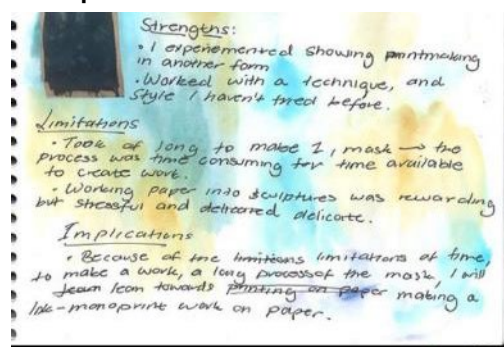 Strengths:
• I experemented showing printmaking
in another form
• Worked with a technique, and
style I haven't tried before.
Limitations
• Took a long to make 1, mask → the
process was time consuming for time available
to create work.
• Working paper into sculptures was rewarding
but stressful and delicared delicate.
Implications
• Because of the limitions limitations of time,
to make a work, a long process of the mask, I will
learn lean towards printing on paper making a
ink-monoprint work on paper.